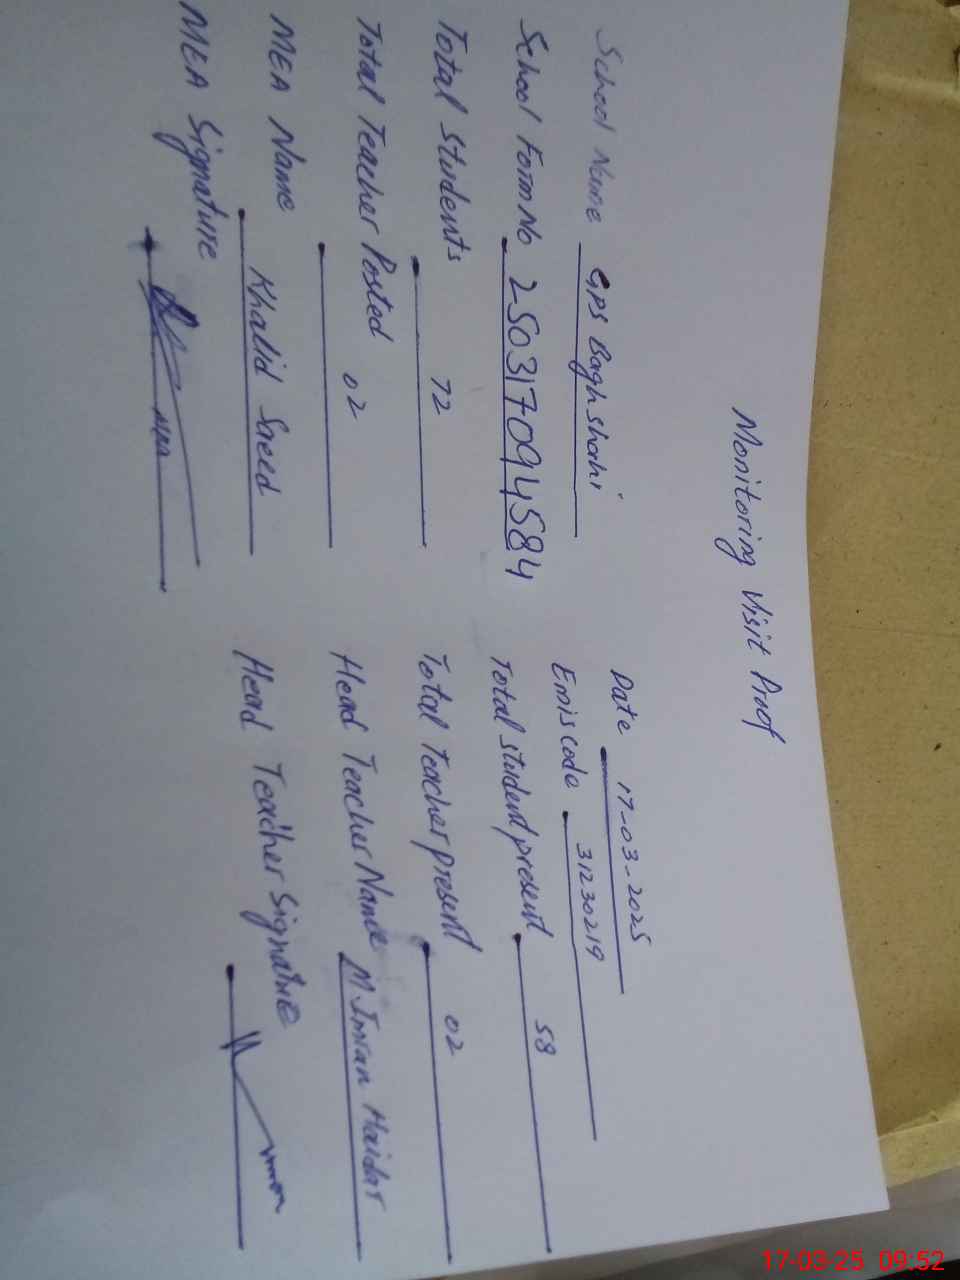 Monitoring Visit Proof
School Name GPS Baghshahi Date 17-03-2025
School Form No 250317094584 Emis code 31230219
Total Students 72 Total student present 58
Total Teacher Posted 02 Total Teacher present 02
MEA Name Khalid Saeed Head Teacher Name M Imran Haidar
MEA Signature MEA Head Teacher Signature
17-03-25 09:52